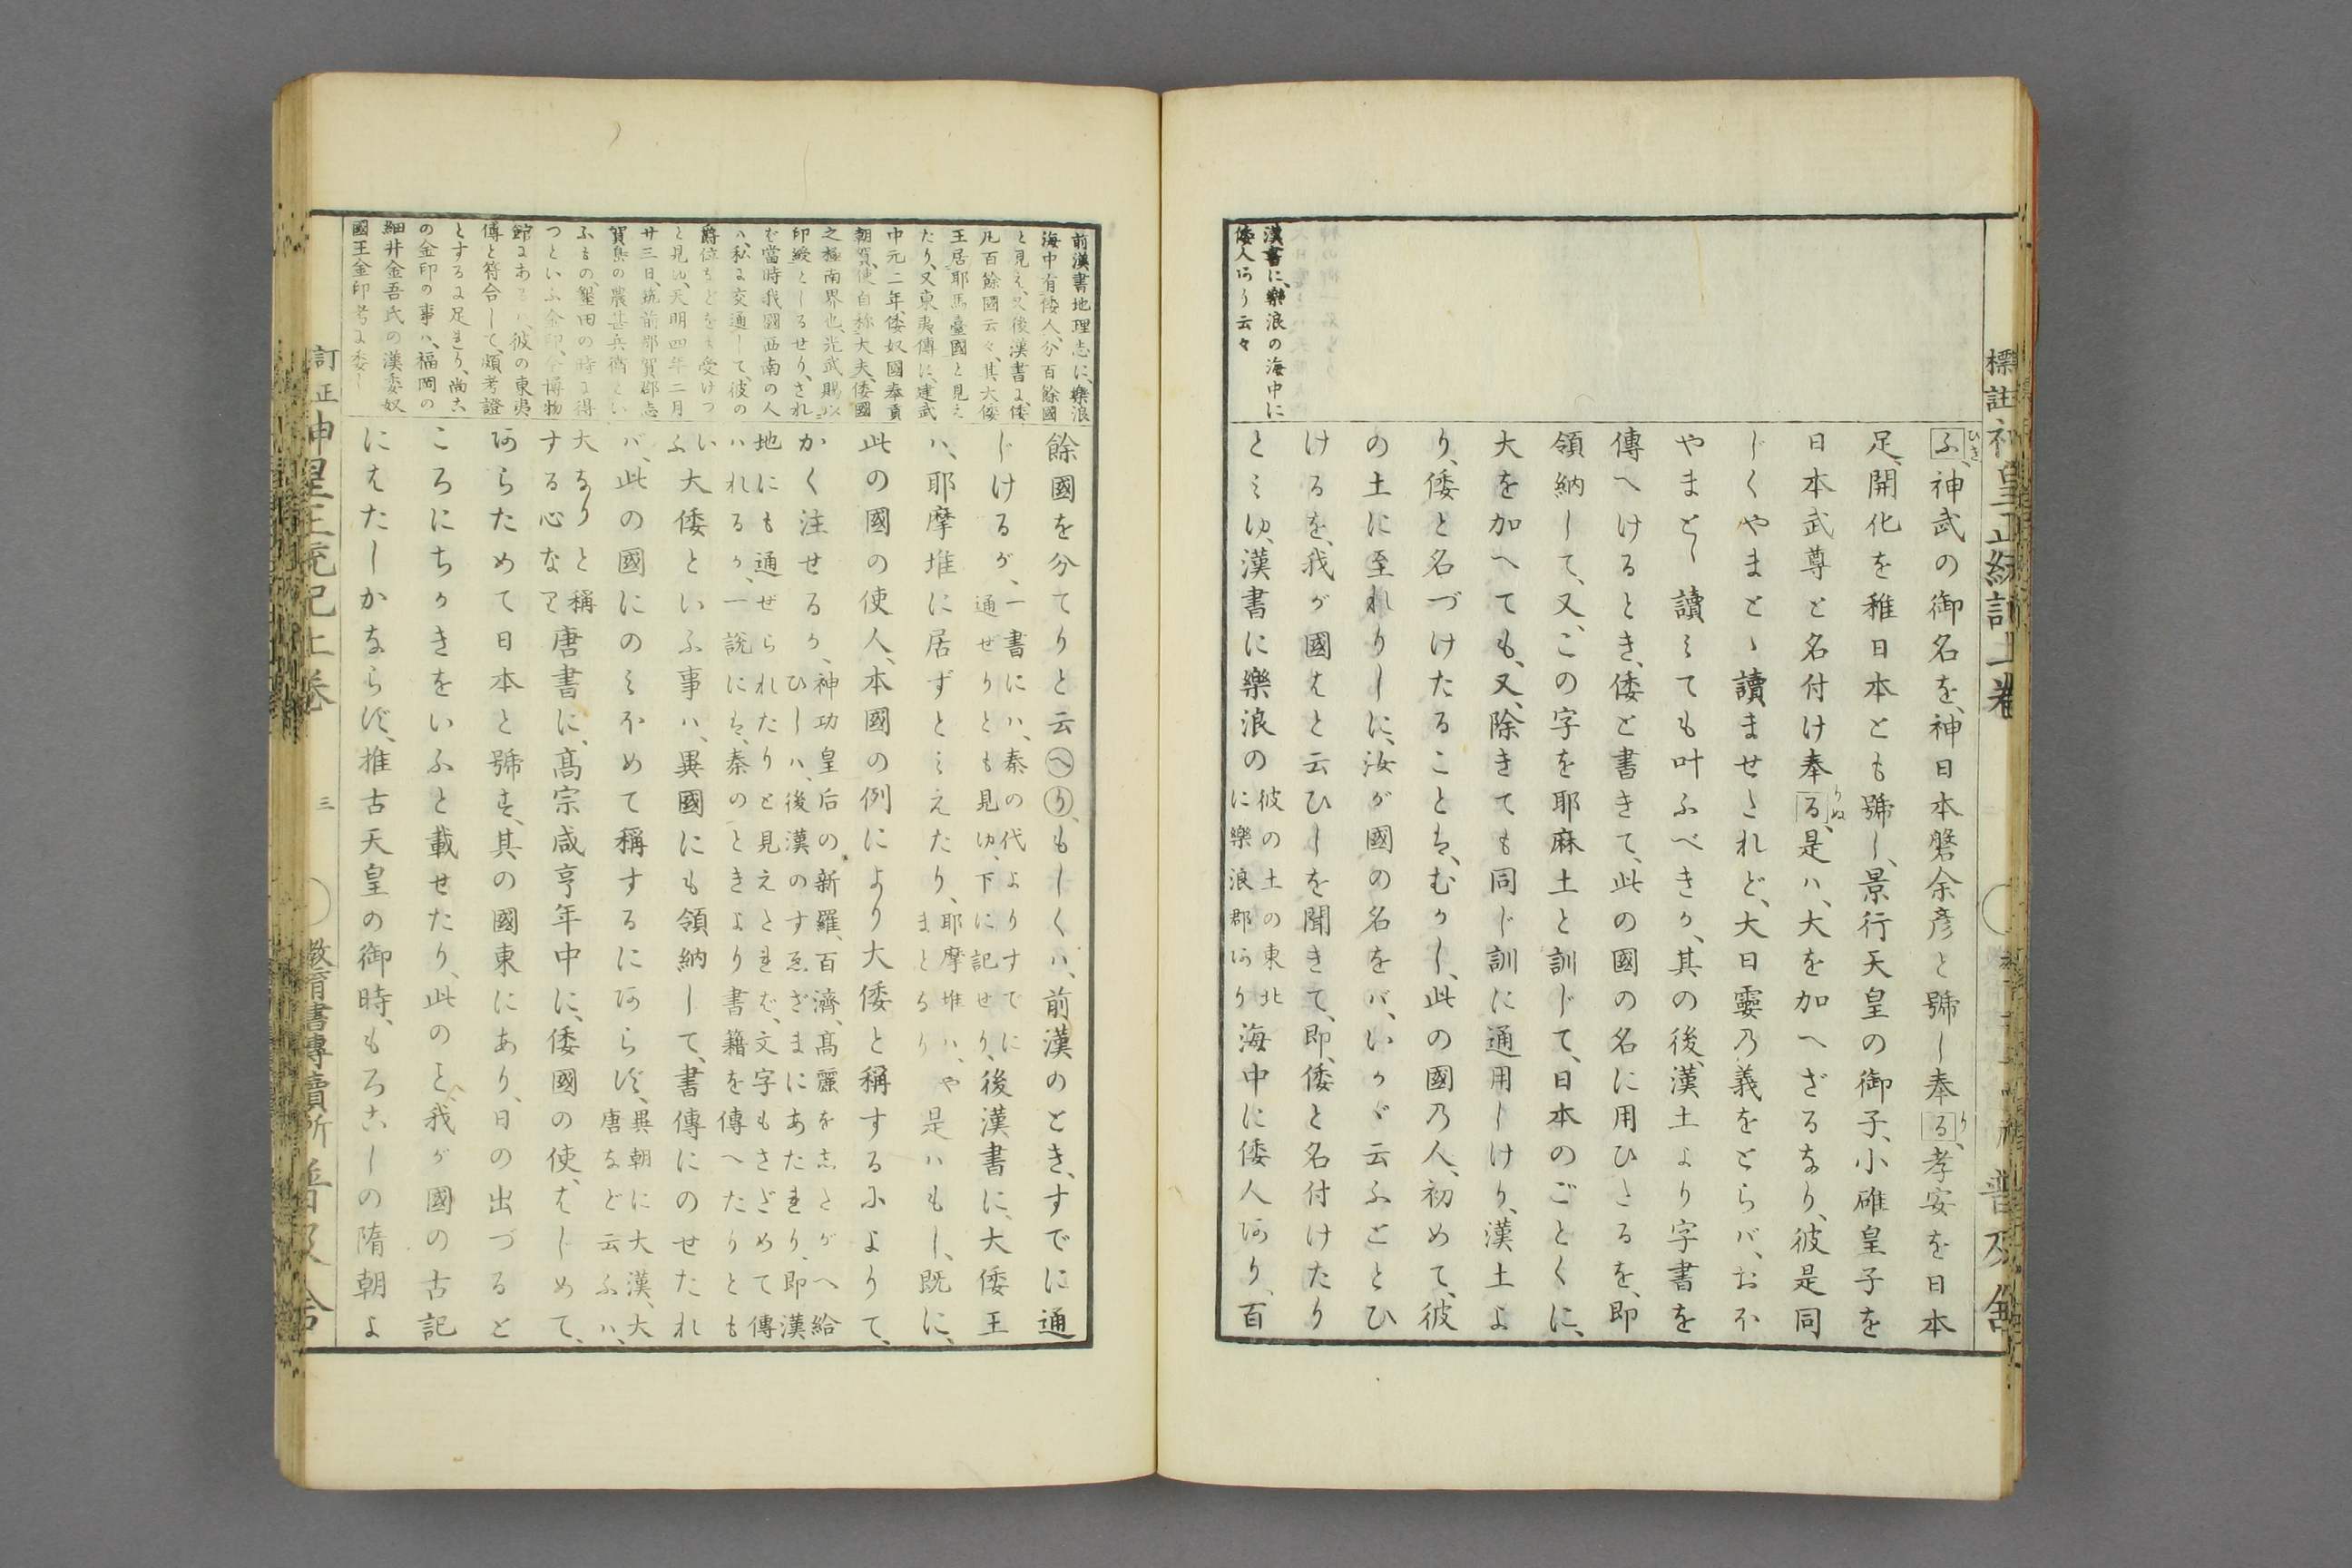 標註
ふ、神武の御名を、神日本磐余彦と號し奉る、孝安を日本
ひき
り
足、開化を稚日本とも號し、景行天皇の御子、小碓皇子を
日本武尊と名付け奉る、是ハ、大を加へざるなり、彼是同
りぬ
じくやまとゝ讀ませたれど、大日孁乃義をとらバ、おほ
やまとゝ讀みても叶ふべきか、其の後、漢土より字書を
傳へけるとき、倭と書きて、此の國の名に用ひたるを、即
領納して、又、この字を耶麻土と訓じて、日本のごとくに、
大を加へても、又、除きても同じ訓に通用しけり、漢土よ
り、倭と名づけたることは、むかし、此の國乃人、初めて、彼
の土に至れりしに、汝が國の名をバ、いかゞ云ふととひ
けるを、我が國はと云ひしを聞きて、即、倭と名付けたり
とみゆ、漢書に樂浪の
彼の土の東北
に樂浪郡あり
海中に倭人あり、百
漢書に、樂浪の海中に
倭人あり云々
普及舍
餘國を分てりと云へり、もしくハ、前漢のとき、すでに通
じけるが、
一書にハ、秦の代よりすでに
通ぜりとも見ゆ、下に記せり、
後漢書に、大倭王
ハ、耶摩堆に居ずとみえたり、
耶摩堆ハ、や
まとなり
是ハもし、既に、
此の國の使人、本國の例により大倭と稱するによりて、
かく注せるか、
神功皇后の新羅、百濟、高麗をしたがへ給
ひしハ、後漢のすゑざまにあたれり、即漢
地にも通ぜられたりと見えたれば、文字もさだめて傳
ハれるか、一説には、秦のときより書籍を傳へたりとも
いふ
大倭といふ事ハ、異國にも領納して、書傳にのせたれ
バ、此の國にのみほめて稱するにあらず、
異朝に大漢、大
唐など云ふハ、
大なりと稱
する心なり
唐書に、高宗咸亨年中に、倭國の使、はじめて、
あらためて日本と號す、其の國東にあり、日の出づると
ころにちかきをいふと載せたり、此のこと、我が國の古記
にはたしかならず、推古天皇の御時、もろこしの隋朝よ
前漢書地理志に、樂浪
海中有倭人、分百餘國
と見え、又後漢書に、倭
凡百餘國云々、其大倭
王居耶馬臺國と見え
たり、又東夷傳に、建武
中元二年、倭奴國奉貢
朝賀、使自称大夫、倭國
之極南界也、光武賜以
印綬としるせり、され
ば當時我國西南の人
ハ、私に交通して、彼の
爵位などをも受けつ
と見ゆ、天明四年二月
廿三日、筑前那賀郡志
賀島の農甚兵衛とい
ふもの、墾田の時に得
つといふ金印、今博物
館にあるハ、彼の東夷
傳と符合して、頗考證
とするに足れり、尚こ
の金印の事ハ、福岡の
細井金吾氏の漢委奴
國王金印考に委し
訂正神皇正統記上卷
三
教育書專賣所 普及舍